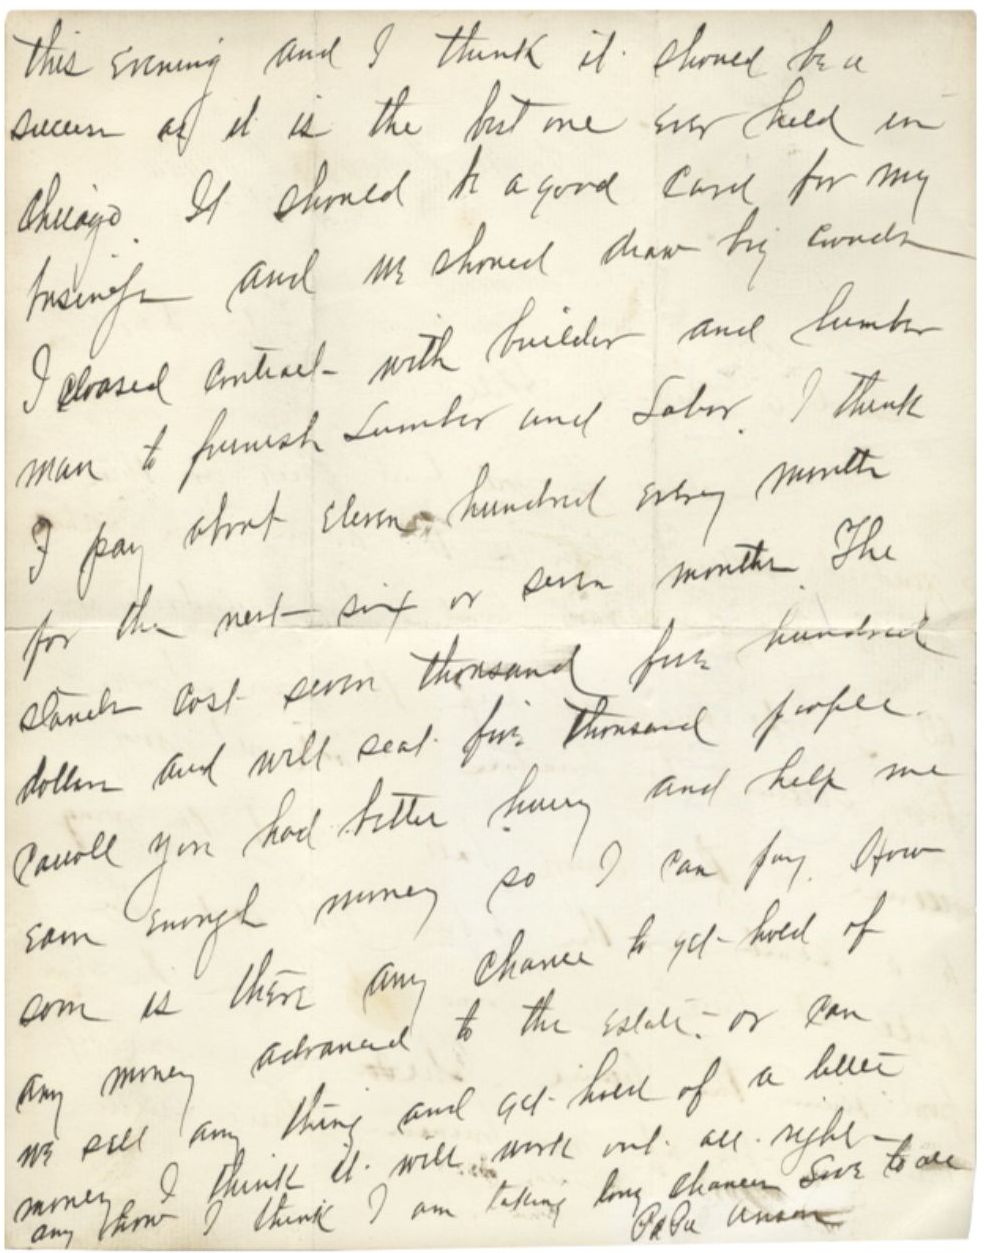 this Evening and I think it should be a
success as it is the best one Ever held in
Chicago. It should be a good Card for my
business and we should draw big crowds
I cloased contract with builder and lumber
man to furnish Lumber and Labor. I think
I pay about Eleven hundred Every month
for the next six or seven months The
stands cost seven thousand five hundred
dollars and will seat five thousand people.
Caroll you had better hurry and help me
Earn Enough money so I can pay. How
soon is there any chance to get hold of
any money advanced to the Estate. or can
we sell any thing and get hold of a little
money I think it will work out all right
any how I think I am taking long chances Love to all
PaPa Anson